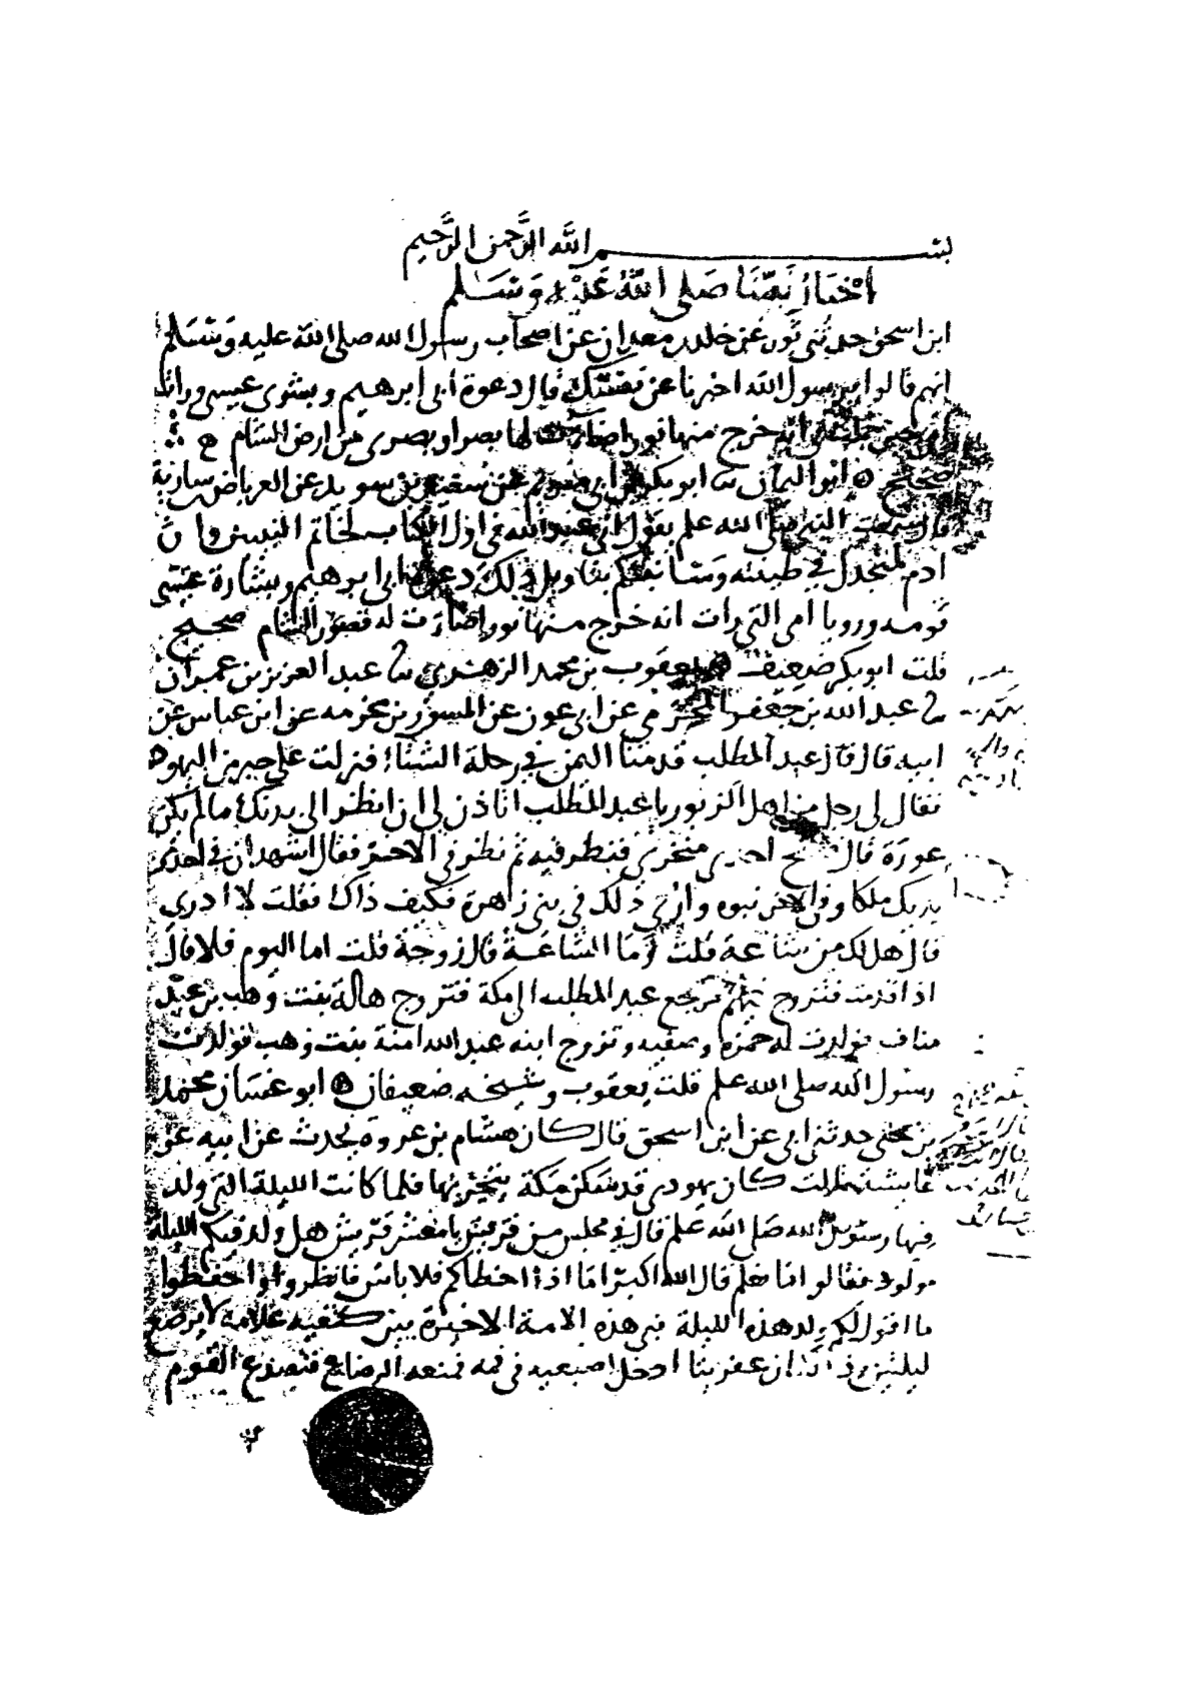 بسم الله الرحمن الرحيم
اخبار نبينا صلى الله عليه وسلم
ابن اسحق حدثني ثور عن خالد بن معدان عن اصحاب رسول الله صلى الله عليه وسلم
انهم قالوا يرسول الله اخبرنا عن نفسك قال دعوة ابي ابرهيم وبشرى عيسى ورات
امي حين حملت بي انه خرج منها نور اضاءت لها بصرا وبصرى من ارض الشام
صحيح ه ابو اليمان ثنا ابو بكر بن ابي مريم عن سعيد بن سويد عن العرباض سارية
قال سمعت النبي صلى الله علم يقول اني عبد الله في اول الكتاب لخاتم النبيين وان
ادم لمنجدل في طينته وسانبئكم بتاويل ذلك دعوة ابي ابرهيم وبشارة عيسى
قومه ورويا امي التي رات انه خرج منها نور اضاءت له قصور الشام صحيح
قلت ابو بكر ضعيف ه يعقوب بن محمد الزهري ثنا عبد العزيز بن عمران
ثنا عبد الله بن جعفر المخرمي عن ابي عون عن المسور بن مخرمه عن ابن عباس عن
ابيه قال قال عبد المطلب قدمنا اليمن في رحلة الشتاء فنزلت على حبر من اليهود
فقال لي رجل من اهل الزبور يا عبد المطلب اتاذن لي ان انظر الى بدنك ما لم يكن
عورة قال ففتح احدى منخري فنظر فيه ثم نظر في الاخر فقال اشهد ان في احدى
يديك ملكا وفي الاخرى نبوه وارى ذلك في بني زاهرة فكيف ذاك فقلت لا ادري
قال هل لك من شاعة قلت وما الشاعة قال زوجة قلت اما اليوم فلا قال
اذا قدمت فتزوج فيهم فرجع عبد المطلب الى مكة فتزوج هالة بنت وهب بن عبد
مناف فولدت له حمزه وصفيه وتزوج ابنه عبد الله امنة بنت وهب فولدت
رسول الله صلى الله علم قلت يعقوب وشيخه ضعيفان ه ابو غسان محمد
بن يحيى حدثني ابي عن ابن اسحق قال كان هشام بن عروه يحدث عن ابيه عن
عايشة قالت كان يهودي قد سكن مكة يتجر بها فلما كانت الليلة التي ولد
فيها رسول الله صلى الله علم قال في مجلس من قريش يا معشر قريش هل ولد فيكم الليلة
مولود فقالوا ما نعلم قال الله اكبر اما اذا اخطاكم فلا باس فانظروا واحفظوا
ما اقول لكم ولد هذه الليلة نبي هذه الامة الاخيرة بين كتفيه علامة لا يرضع
ليلتين وذلك ان عفريتا ادخل اصبعيه في فمه فمنعه الرضاع فتصدع القوم